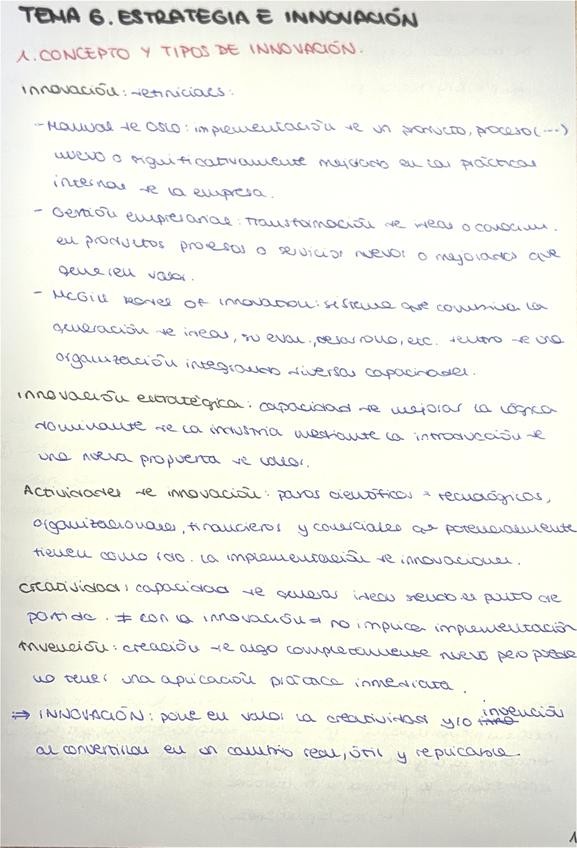 TEMA 6. ESTRATEGIA E INNOVACIÓN
1. CONCEPTO Y TIPOS DE INNOVACIÓN.
Innovación: definiciones:
- Manual de Oslo: implementación de un producto, proceso (...)
nuevo o significativamente mejorado en las prácticas
internas de la empresa.
- Gestión empresarial: transformación de ideas o conocim.
en productos procesos o servicios nuevos o mejorados que
generen valor.
- McGill Model of innovation: sistema que combina la
generación de ideas, su eval., desarrollo, etc. dentro de una
organización integrando diversas capacidades.
Innovación estratégica: capacidad de mejorar la lógica
dominante de la industria mediante la introducción de
una nueva propuesta de valor.
Actividades de innovación: pasos científicos, tecnológicos,
organizacionales, financieros y comerciales que potencialmente
tienen como rdo. la implementación de innovaciones.
Creatividad: capacidad de generar ideas siendo el punto de
partida. ≠ con la innovación → no implica implementación
Invención: creación de algo completamente nuevo pero puede
no tener una aplicación práctica inmediata.
⇒ INNOVACIÓN: pone en valor la creatividad y/o invención
al convertirlas en un cambio real, útil y replicable.
1